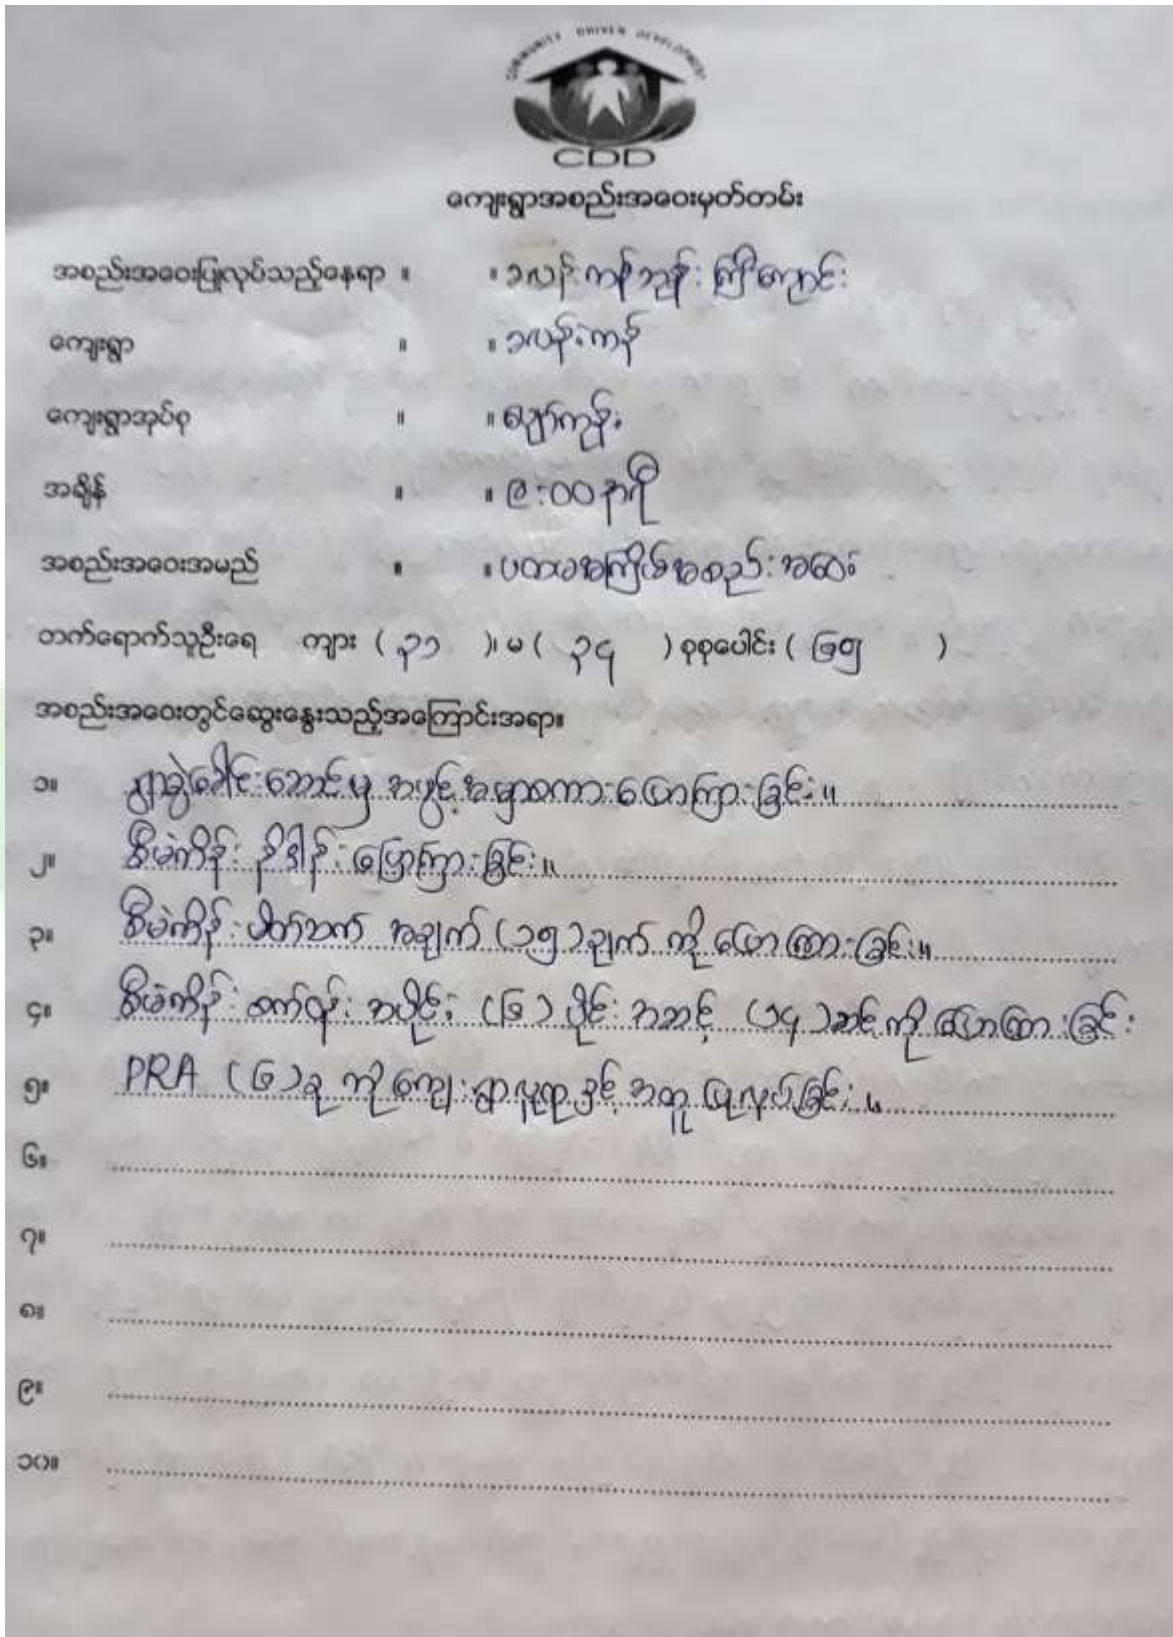 COMMUNITY DRIVEN DEVELOPMENT
CDD
ကျေးရွာအစည်းအဝေးမှတ်တမ်း
အစည်းအဝေးပြုလုပ်သည့်နေရာ ။ ။ ခလန်းကန်ဘုန်းကြီးကျောင်း
ကျေးရွာ ။ ။ ခလန်းကန်
ကျေးရွာအုပ်စု ။ ။ ကုန်း
အချိန် ။ ။ ၉:၀၀ နာရီ
အစည်းအဝေးအမည် ။ ။ ပထမအကြိမ်အစည်းအဝေး
တက်ရောက်သူဦးရေ ကျား ( ၃၁ )၊ မ ( ၃၄ ) စုစုပေါင်း ( ၆၅ )
အစည်းအဝေးတွင်ဆွေးနွေးသည့်အကြောင်းအရာ။
၁။ ရွာခွဲခေါင်းဆောင်မှ အဖွင့်အမှာစကားပြောကြားခြင်း။
၂။ စီမံကိန်း နိဒါန်း ပြောကြားခြင်း။
၃။ စီမံကိန်း ပိတ်ဆက် အချက် (၁၅) ချက် ကို ပြောကြားခြင်း။
၄။ စီမံကိန်း စက်ဝန်း အပိုင်း (၆) ပိုင်း အဆင့် (၁၄) ဆင့် ကို ပြောကြားခြင်း
၅။ PRA (၆) ခု ကို ကျေးရွာလူထုနှင့် အတူ ပြုလုပ်ခြင်း။
၆။
၇။
၈။
၉။
၁၀။